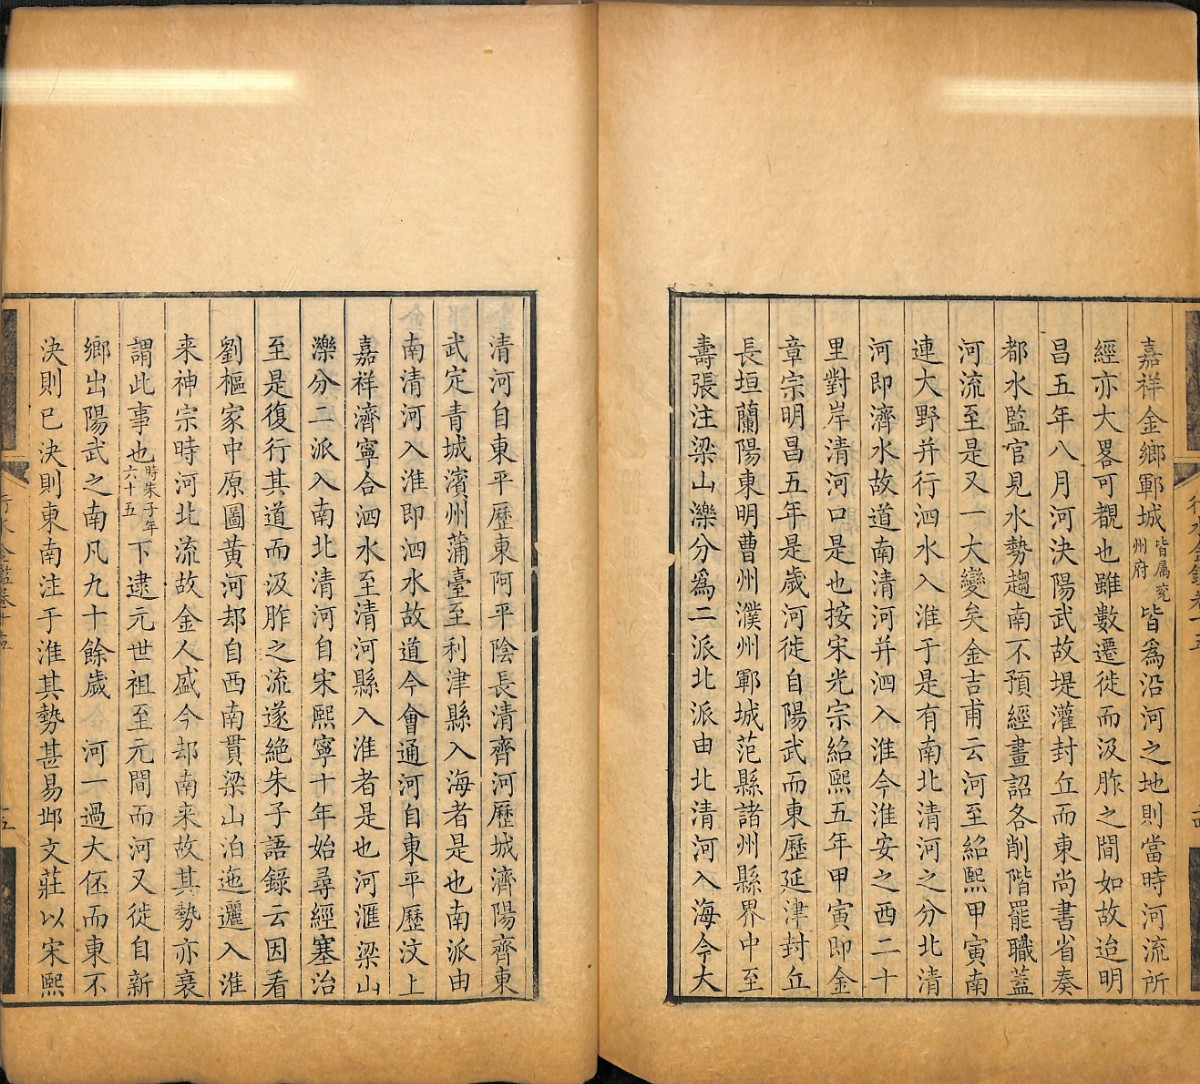 嘉祥金鄉鄆城皆属兖州府皆爲沿河之地則當時河流所
經亦大畧可覩也雖數遷徙而汲胙之間如故迨明
昌五年八月河決陽武故堤灌封丘而東尚書省奏
都水監官見水勢趨南不預經畫詔各削階罷職蓋
河流至是又一大變矣金吉甫云河至紹熙甲寅南
連大野并行泗水入淮于是有南北清河之分北清
河即濟水故道南清河并泗入淮今淮安之西二十
里對岸清河口是也按宋光宗紹熙五年甲寅即金
章宗明昌五年是歲河徙自陽武而東歷延津封丘
長垣蘭陽東明曹州濮州鄆城范縣諸州縣界中至
壽張注梁山濼分爲二派北派由北清河入海今大
清河自東平歷東阿平陰長清齊河歷城濟陽齊東
武定青城濱州蒲臺至利津縣入海者是也南派由
南清河入淮即泗水故道今會通河自東平歷汶上
嘉祥濟寧合泗水至清河縣入淮者是也河滙梁山
濼分二派入南北清河自宋熙寧十年始尋經塞治
至是復行其道而汲胙之流遂絶朱子語錄云因看
劉樞家中原圖黄河却自西南貫梁山泊迤邐入淮
来神宗時河北流故金人盛今却南来故其勢亦衰
謂此事也時朱子年六十五下逮元世祖至元間而河又徙自新
鄉出陽武之南凡九十餘歲　河一過大伾而東不
決則已決則東南注于淮其勢甚易邱文莊以宋熙